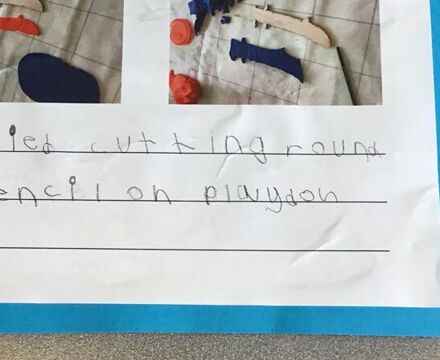 ied cutting round
encil on playdoh